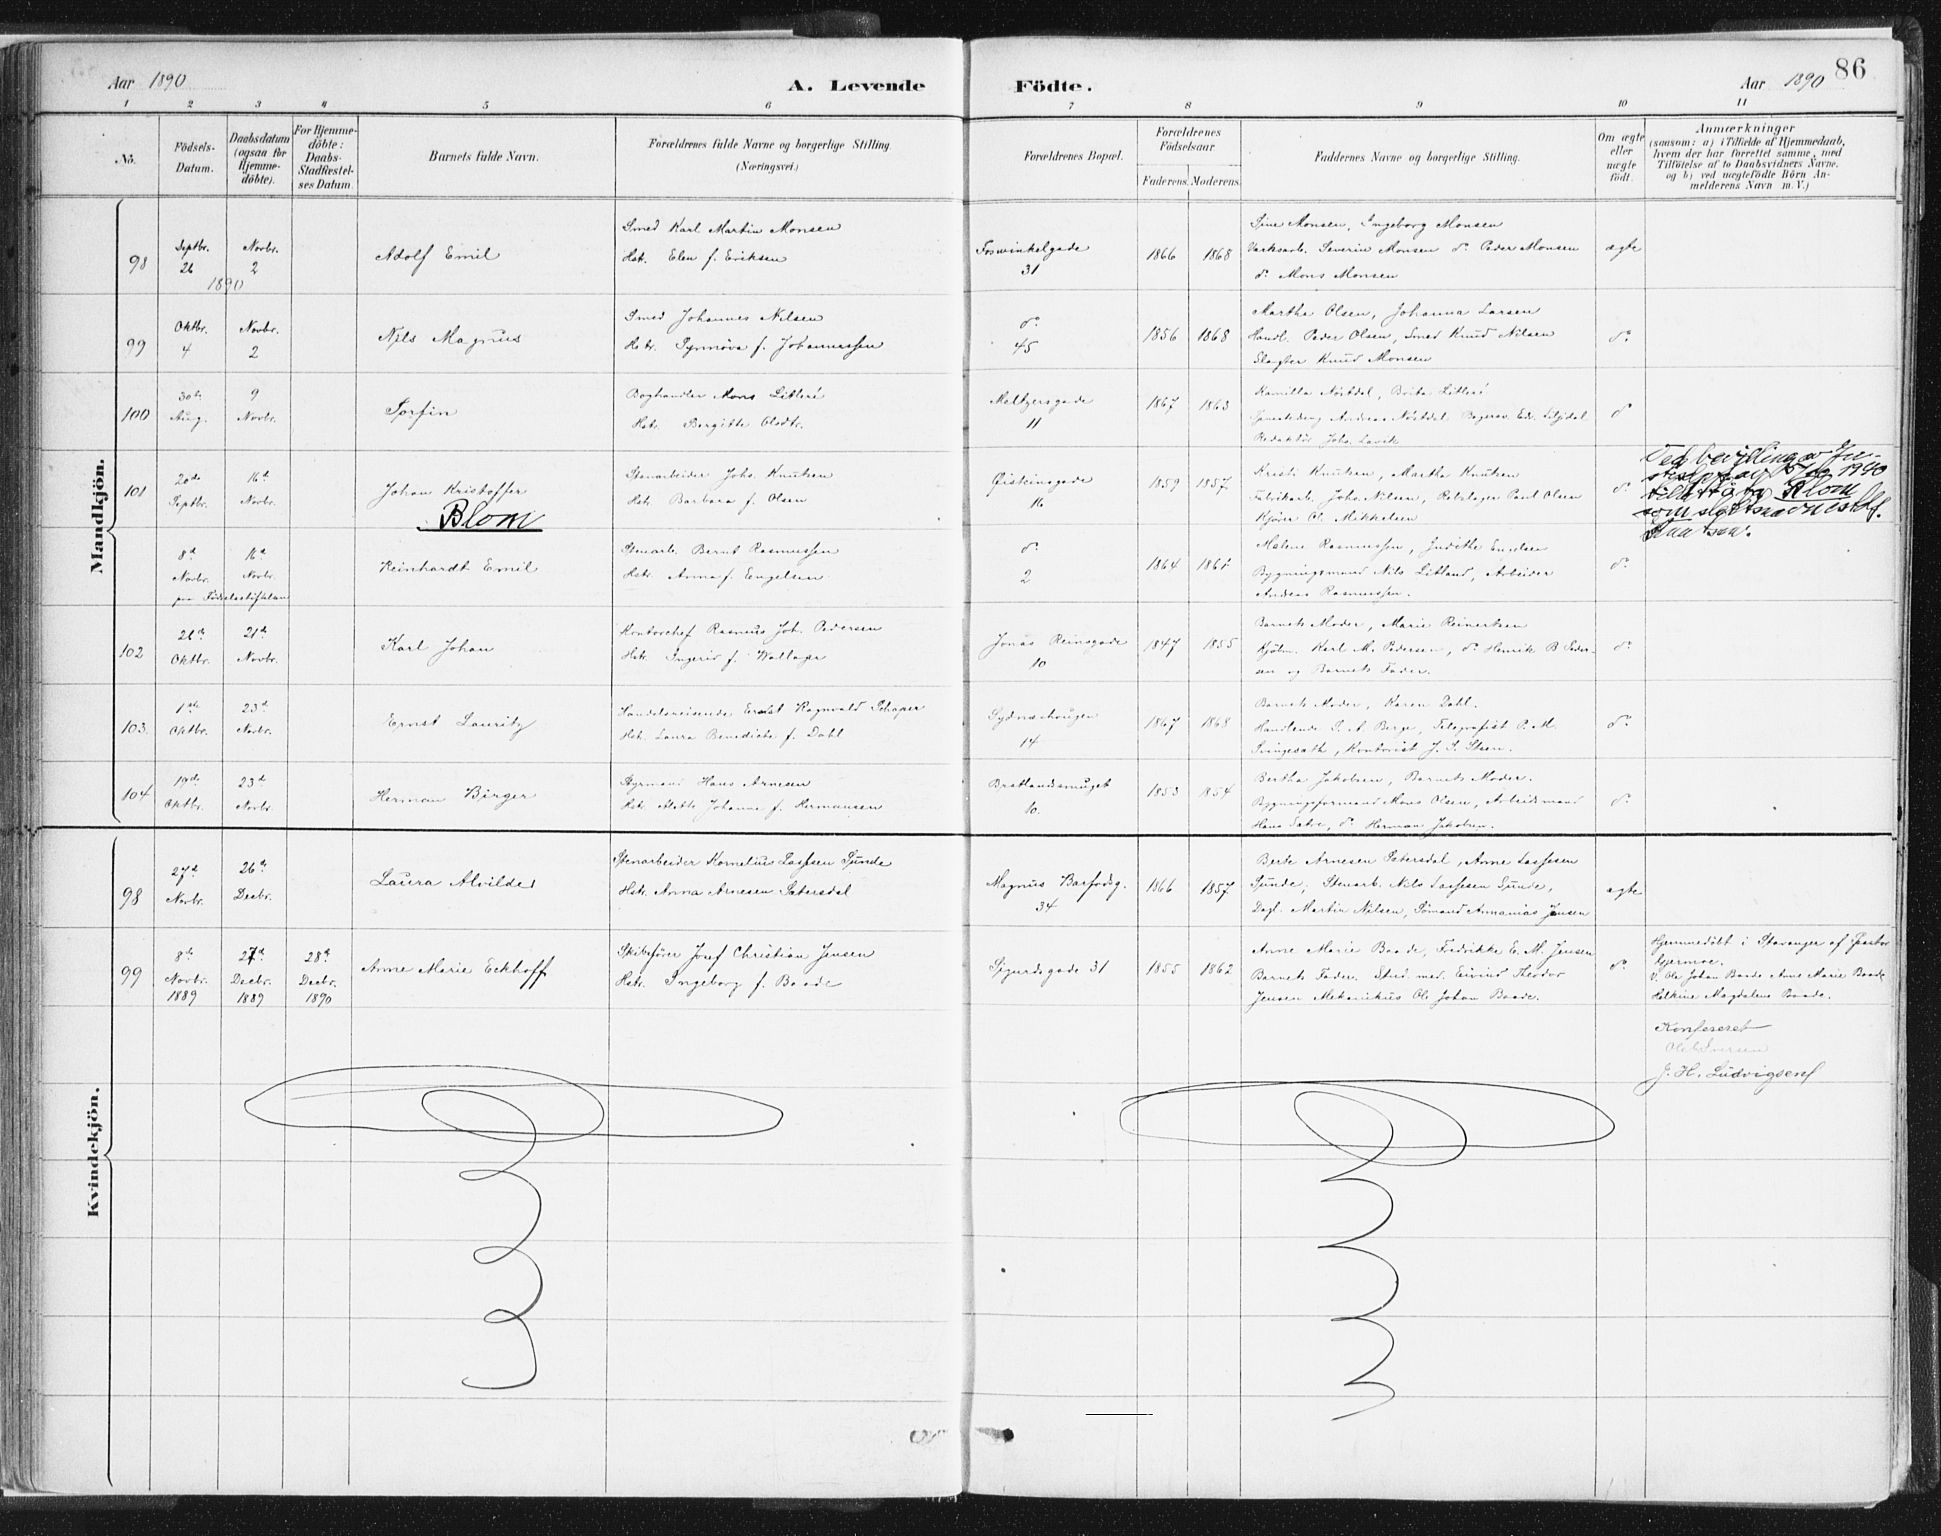 Aar 1890
A. Levende Födte.
Aar 1890
86
1 2 3 4 5 6 7 8 9 10 11
No.
Födsels-
Datum.
Daabsdatum
(ogsaa for
Hjemme-
döbte).
For Hjemme-
döbte:
Daabs-
Stadfæstel-
ses Datum.
Barnets fulde Navn.
Forældrenes fulde Navne og borgerlige Stilling.
(Næringsvei.)
Forældrenes Bopæl.
Forældrenes
Födselsaar.
Faderens. Moderens.
Faddernes Navne og borgerlige Stilling.
Om ægte
eller
uægte
födt.
Anmærkninger
(saasom: a) i Tilfælde af Hjemmedaab,
hvem der har forrettet samme, med
Tilföielse af to Daabsvidners Navne,
og b) ved uægtefödte Börn An-
melderens Navn m. V.)
Mandkjön.
98
Septbr.
26
1890
Novbr.
2
Adolf Emil
Smed Karl Martin Monsen
Hst. Elen f. Eriksen
Foswinkelgade
31
1866 1868
Sine Monsen, Ingeborg Monsen
Værksarb. Severin Monsen do. Peder Monsen
do. Mons Monsen
ægte
99
Oktbr.
4
Novbr.
2
Nils Magnus
Smed Johannes Nilsen
Hstr. Synnøve f. Johannessen
do.
45
1856 1868
Martha Olsen, Johanna Larsen
Handl. Peder Olsen, Smed Knud Nilsen
Slagter Knud Monsen
do.
100
30te
Aug.
9
Novbr.
Torfin
Boghandler Mons Litleré
Hstr. Bergitte Olsdtr.
Meltzersgade
11
1867 1863
Kamilla Nöstdal, Brita Litleré
Andreas Nöstdal
Redaktör Johs. Lavik
do
101
20de
Septbr.
16de
Novbr.
Johan Kristoffer
Blom
Stenarbeider Johs. Knutsen
Hst. Barbara f. Olsen
Øisteinsgade
16
1859 1857
Kristi Knutsen, Martha Knutsen
Fabrikarb. Johs. Nilsen, Rebslager Paul Olsen
Kjörer Cl. Mikkelsen
do.
Ved bevilling av Ju-
1940
Blom
som slektsnavn
8de
Novbr.
16de
Novbr.
Reinhardt Emil
Stenarb. Bernt Rasmussen
Hst. Anna f. Engelsen
do.
2
1864 1861
Malene Rasmussen, Judithe Engelsen
Bygningsmand Nils Litland, Arbeider
Andreas Rasmussen.
do.
102
26de
Oktbr.
21de
Novbr.
Karl Johan
Kontorchef Rasmus Joh. Pedersen
Hst. Ingerid f. Wallager
Jonas Reinsgade
10
1847 1855
Barnets Moder, Marie Reinertsen
Kjöbm. Karl M. Pedersen, do. Henrik B Peder-
sen og Barnets Fader.
do.
103.
1ste
Oktbr.
23de
Novbr.
Ernst Lauritz
Handelsreisende Ernst Ragnvald Schaper
Hst. Laura Benedicte f. Dahl
Sydneshaugen
14
1867 1868
Barnets Moder, Karen Dahl.
Handlende S. A. Berge, Telegrafist P. M.
Svingesath, Kontorist J. S. Steen.
do.
104
19de
Oktbr.
23de
Novbr.
Herman Birger
Styrmand Hans Arnesen
Hst. Mette Johanne f. Hermansen
Bratlandsmuget
10.
1853 1854
Bertha Jakobsen, Barnets Moder.
Bygningsformand Mons Olsen, Arbeidsmand
Hans Sætre, do. Herman Jakobsen.
do.
Kvindekjön.
98
27de
Novbr.
26de
Decbr.
Laura Alvilde
Stenarbeider Kornelius Lassesen Sunde
Hst. Anna Arnesen Sætersdal
Magnus Barfodsg.
34
1866 1857
Berte Arnesen Sætersdal, Anne Lassesen
Sunde, Stenarb. Nils Lassesen Sunde,
Dagl. Martin Nilsen, Sömand Annanias Jensen
ægte
99
8de
Novbr.
1889
27de
Decbr.
1889
28de
Decbr.
1890
Anne Marie Eckhoff
Skibsförer Josef Christian Jensen
Hst. Ingeborg f. Baade
Sigurdsgade 31
1855 1862
Anne Marie Baade, Fredrikke E. M. Jensen
Barnets Fader. Stud. med. Eivind Theodor
Jensen Mekanikus Ole Johan Baade.
do.
Hjemmedöbt i Stavanger af Pastor
Gjermoe.
V. Ole Johan Baade Anne Marie Baade
Helkine Magdalene Baade.
Konfereret
Ole Iversen
J. H. Ludvigsen